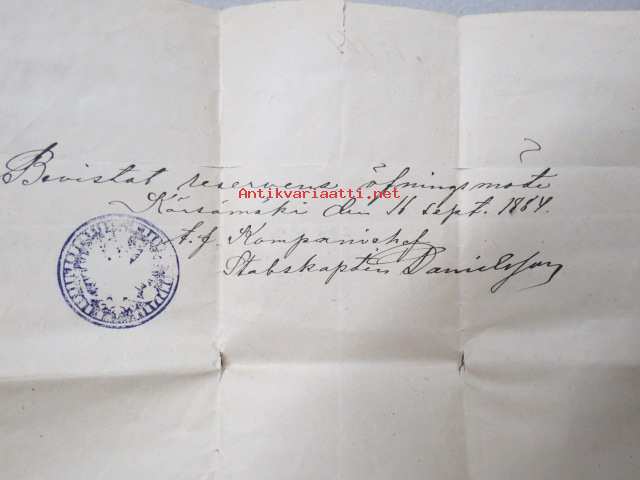 Bevistat reservens öfningsmöte
Kärsämäki den 16 sept. 1884.
t.f. Kompanichef
Stabskapten Danielsson
Antikvariaatti.net